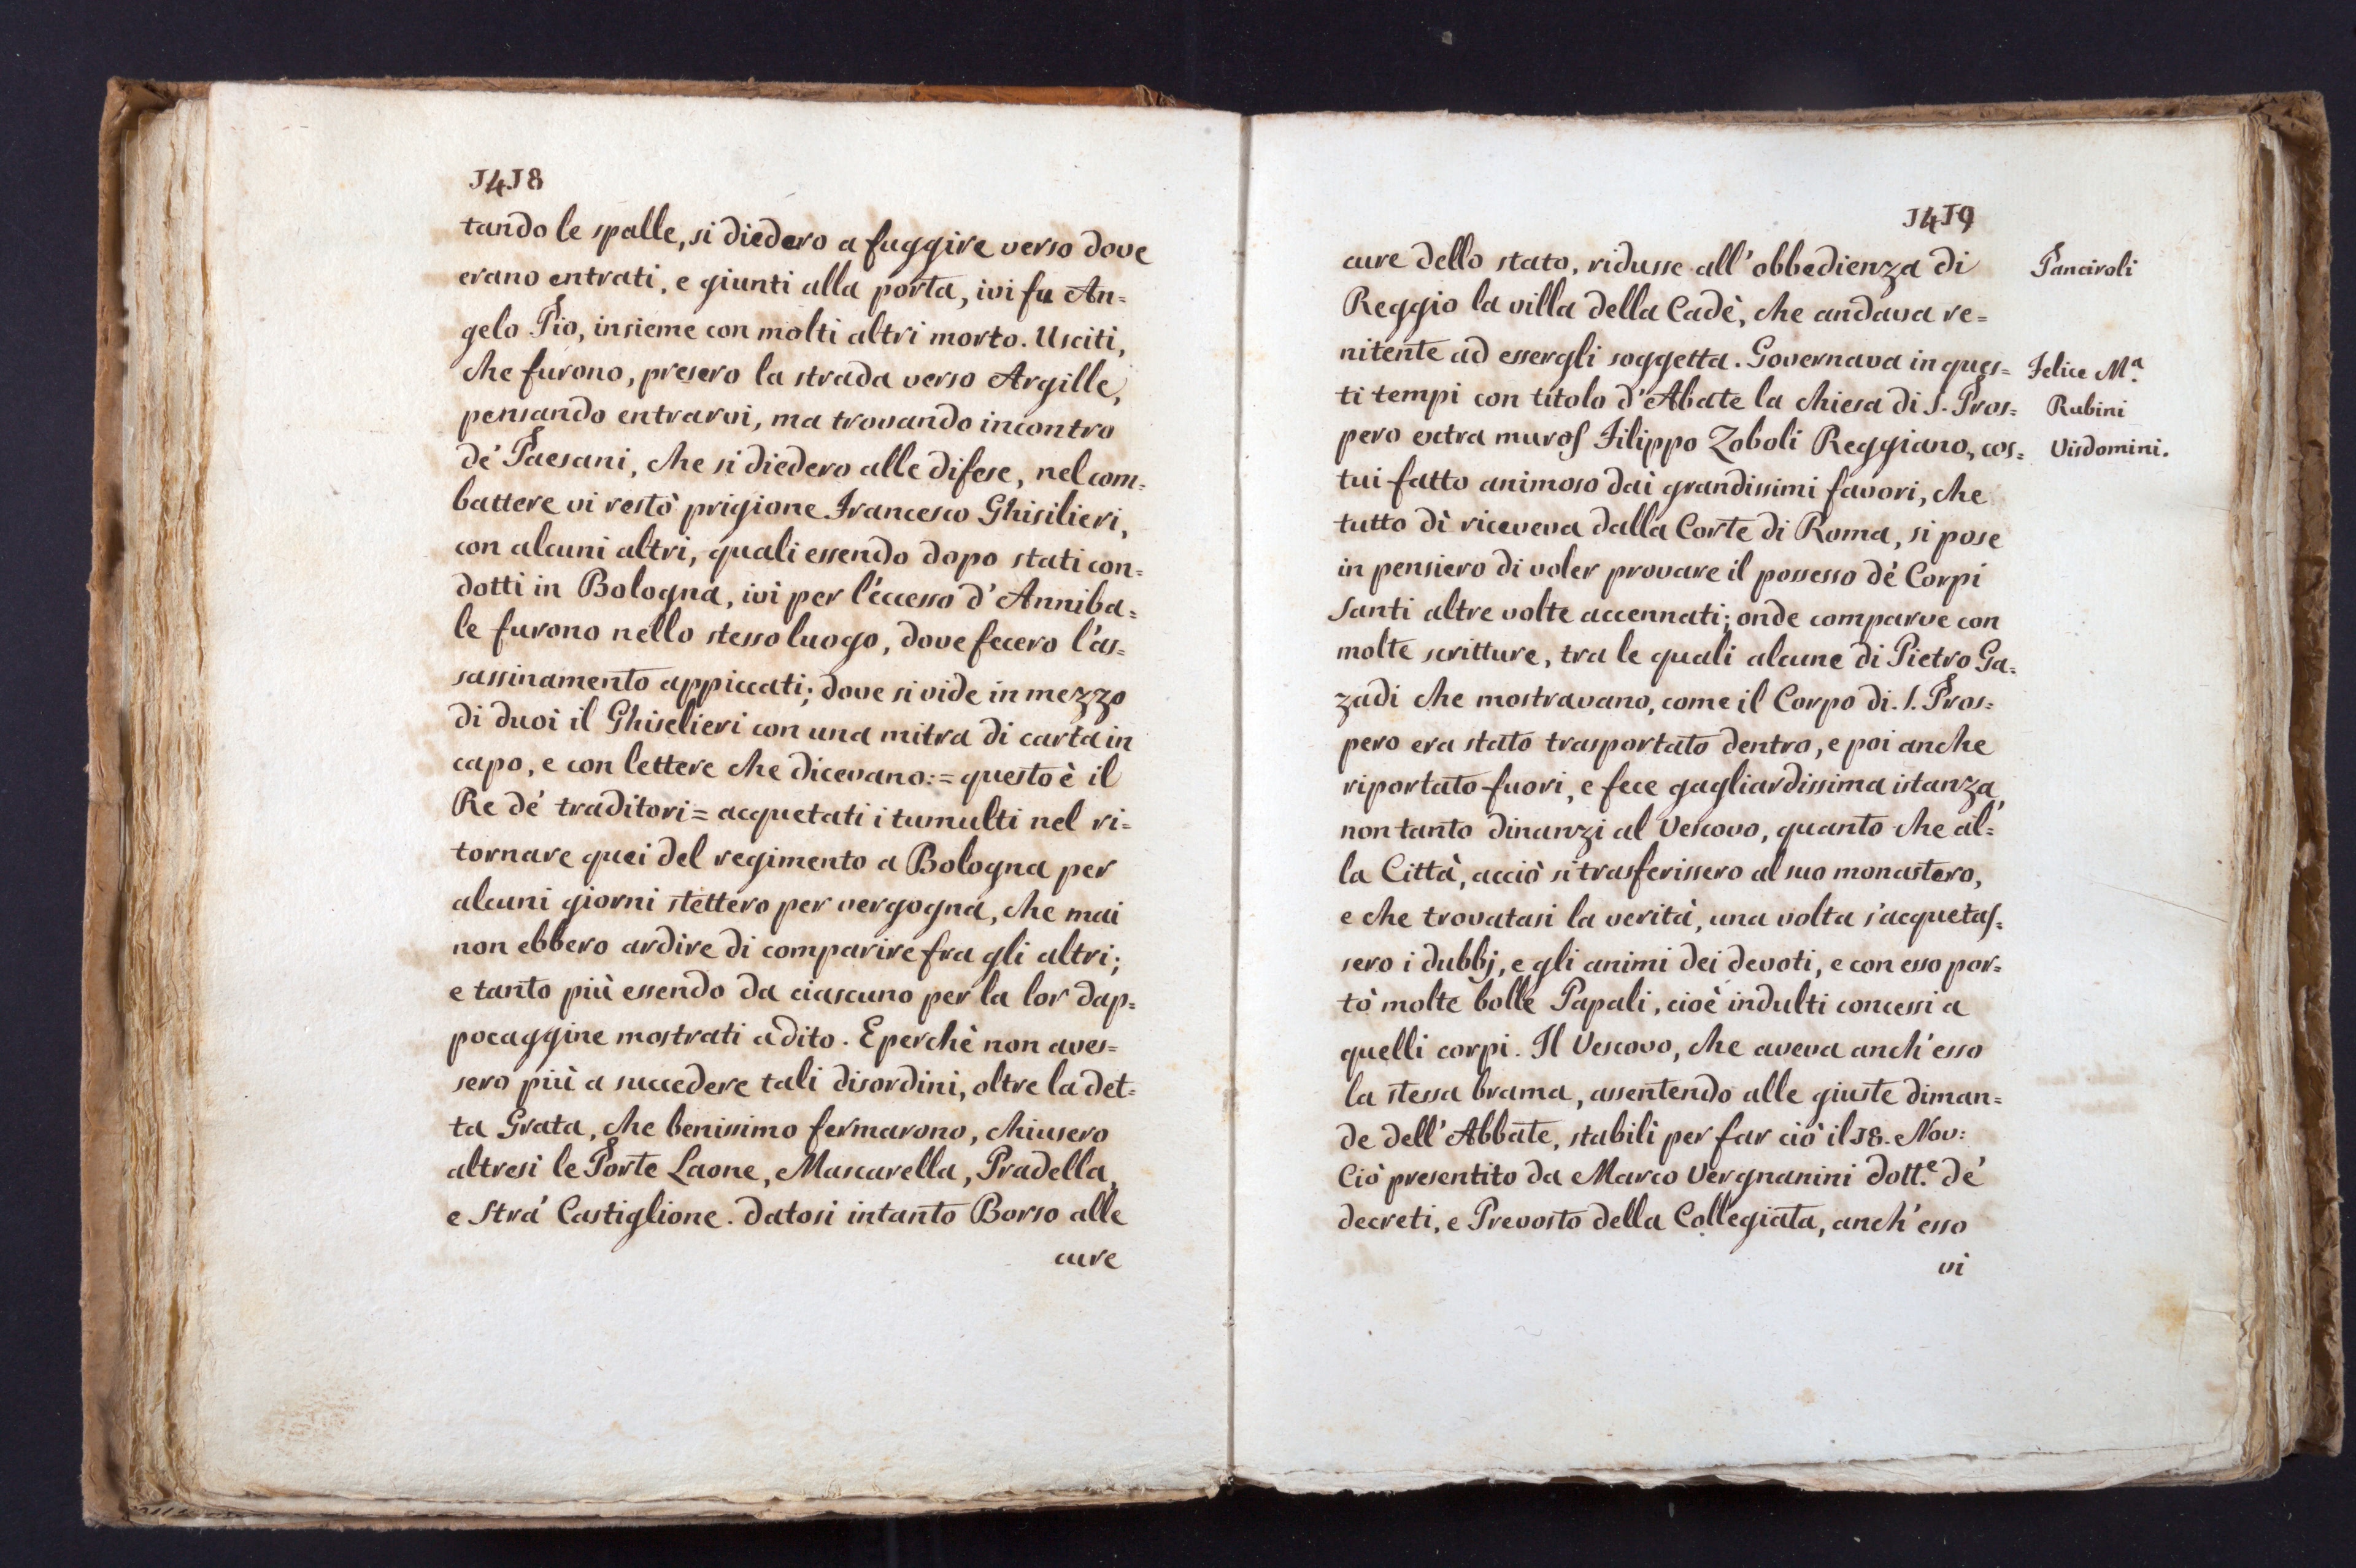 1418
tando le spalle, si diedero a fuggire verso dove
erano entrati, e giunti alla porta, ivi fu An=
gelo Pio, insieme con molti altri morto. Usciti,
che furono, presero la strada verso Argille,
pensando entrarvi, ma trovando incontro
de' Paesani, che si diedero alle difese, nel com=
battere vi restò prigione Francesco Ghisilieri,
con alcuni altri, quali essendo dopo stati con=
dotti in Bologna, ivi per l'eccesso d'Anniba=
le furono nello stesso luogo, dove fecero l'as=
sassinamento appiccati; dove si vide in mezzo
di duoi il Ghiselieri con una mitra di carta in
capo, e con lettere che dicevano:= questo è il
Re de' traditori = acquetati i tumulti nel ri=
tornare quei del regimento a Bologna per
alcuni giorni stettero per vergogna, che mai
non ebbero ardire di comparire fra gli altri;
e tanto più essendo da ciascuno per la lor dap=
pocaggine mostrati a dito. E perchè non aves=
sero più a succedere tali disordini, oltre la det=
ta Grata, che benissimo fermarono, chiusero
altresi le Porte Laone, Mascarella, Pradella,
e Stra' Castiglione. Datosi intanto Borso alle
cure
1419
cure dello stato, ridusse all'obbedienza di
Reggio la villa della Cadè, che andava re=
nitente ad essergli soggetta. Governava in ques=
ti tempi con titolo d'Abate la chiesa di S. Pros=
pero extra muros Filippo Zoboli Reggiano, cos=
tui fatto animoso dai grandissimi favori, che
tutto dì riceveva dalla Corte di Roma, si pose
in pensiero di voler provare il possesso de' Corpi
Santi altre volte accennati; onde comparve con
molte scritture, tra le quali alcune di Pietro Ga=
zadi che mostravano, come il Corpo di. S. Pros=
pero era stato trasportato dentro, e poi anche
riportato fuori, e fece gagliardissima istanza,
non tanto dinanzi al Vescovo, quanto che al=
la Città, acciò si trasferissero al suo monastero,
e che trovatasi la verità, una volta s'acquetas=
sero i dubbj, e gli animi dei devoti, e con esso por=
tò molte bolle Papali, cioè indulti concessi a
quelli corpi. Il Vescovo, che aveva anch'esso
la stessa brama, assentendo alle giuste diman=
de dell'Abbate, stabilì per far ciò il 18. Nov:
Ciò presentito da Marco Vergnanini dott.e de'
decreti, e Prevosto della Collegiata, anch'esso
vi
Panciroli
Felice M.a
Rubini
Visdomini.